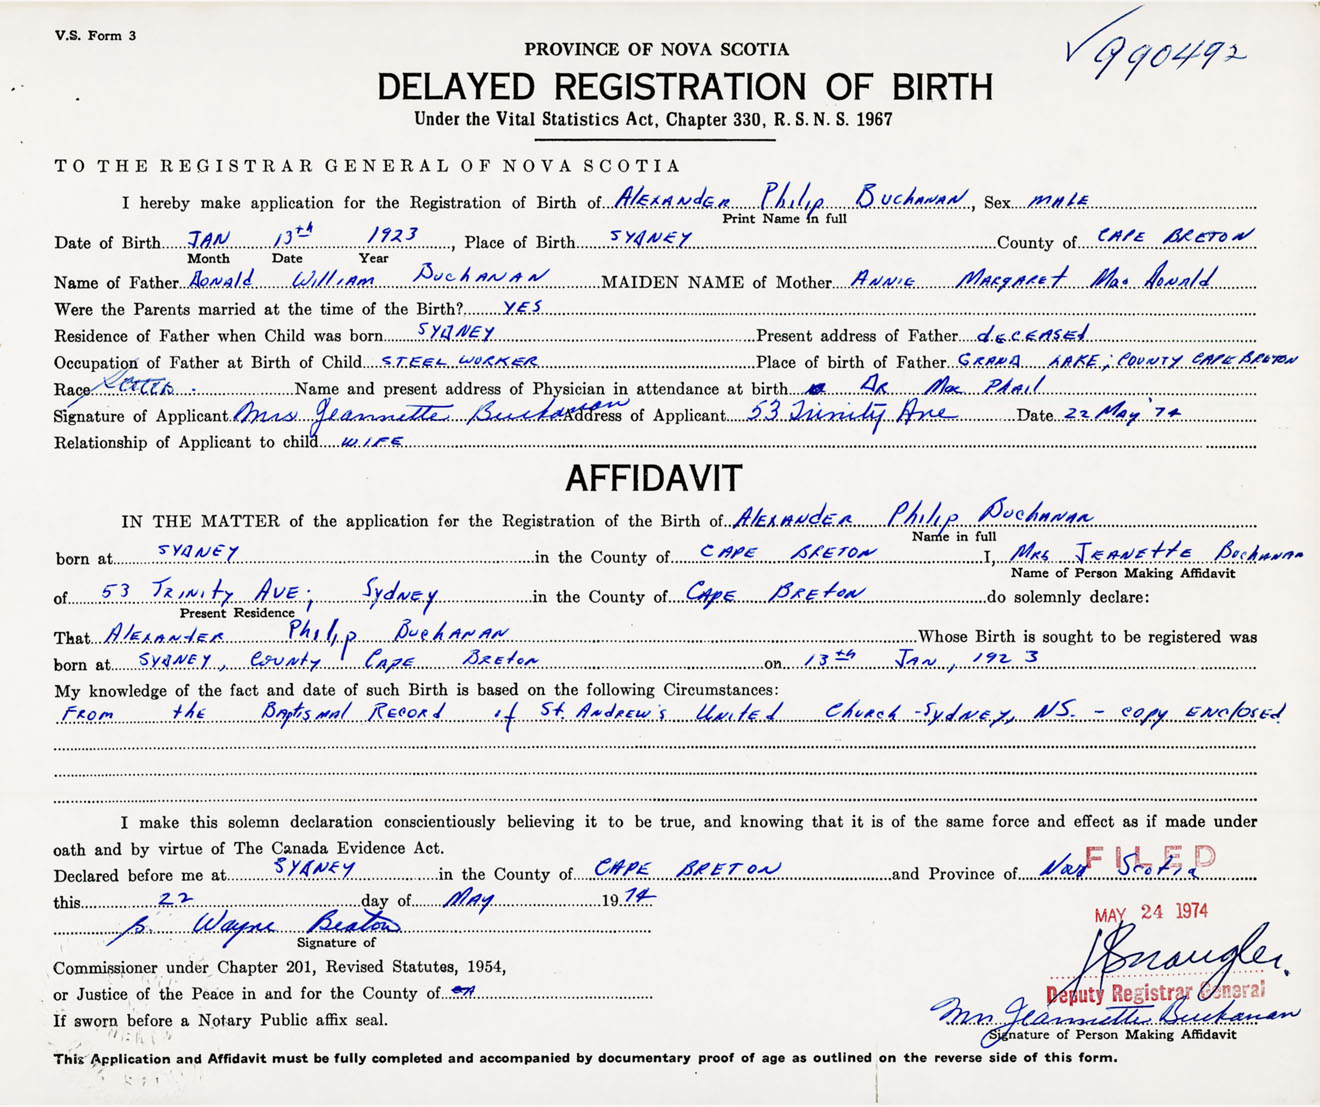 V.S. Form 3
990492
PROVINCE OF NOVA SCOTIA
DELAYED REGISTRATION OF BIRTH
Under the Vital Statistics Act, Chapter 330, R. S. N. S. 1967
TO THE REGISTRAR GENERAL OF NOVA SCOTIA
I hereby make application for the Registration of Birth of Alexander Philip Buchanan, Sex MALE
Print Name in full
Date of Birth JAN 13th 1923, Place of Birth SYDNEY County of CAPE BRETON
Month Date Year
Name of Father Donald William Buchanan MAIDEN NAME of Mother ANNIE MARGARET Mac Donald
Were the Parents married at the time of the Birth? YES
Residence of Father when Child was born SYDNEY Present address of Father deceased
Occupation of Father at Birth of Child STEEL WORKER Place of birth of Father GRAND LAKE, COUNTY CAPE BRETON
Race Name and present address of Physician in attendance at birth DR Mac Phail
Signature of Applicant Mrs Jeannette Buchanan Address of Applicant 53 Trinity Ave Date 22 May '74
Relationship of Applicant to child WIFE
AFFIDAVIT
IN THE MATTER of the application for the Registration of the Birth of Alexander Philip Buchanan
Name in full
born at SYDNEY in the County of CAPE BRETON I, Mrs JEANETTE Buchanan
Name of Person Making Affidavit
of 53 Trinity AVE; Sydney in the County of Cape Breton do solemnly declare:
Present Residence
That Alexander Philip Buchanan Whose Birth is sought to be registered was
born at SYDNEY, County Cape Breton on 13th Jan, 1923
My knowledge of the fact and date of such Birth is based on the following Circumstances:
From the Baptismal Record of St. Andrew's United Church - Sydney, NS. - copy enclosed
I make this solemn declaration conscientiously believing it to be true, and knowing that it is of the same force and effect as if made under
oath and by virtue of The Canada Evidence Act.
FILED
Declared before me at SYDNEY in the County of CAPE BRETON and Province of Nova Scotia
this 22 day of May 1974
MAY 24 1974
S. Wayne Beaton
Signature of
Commissioner under Chapter 201, Revised Statutes, 1954,
or Justice of the Peace in and for the County of
Deputy Registrar General
Mrs Jeannette Buchanan
If sworn before a Notary Public affix seal.
Signature of Person Making Affidavit
This Application and Affidavit must be fully completed and accompanied by documentary proof of age as outlined on the reverse side of this form.